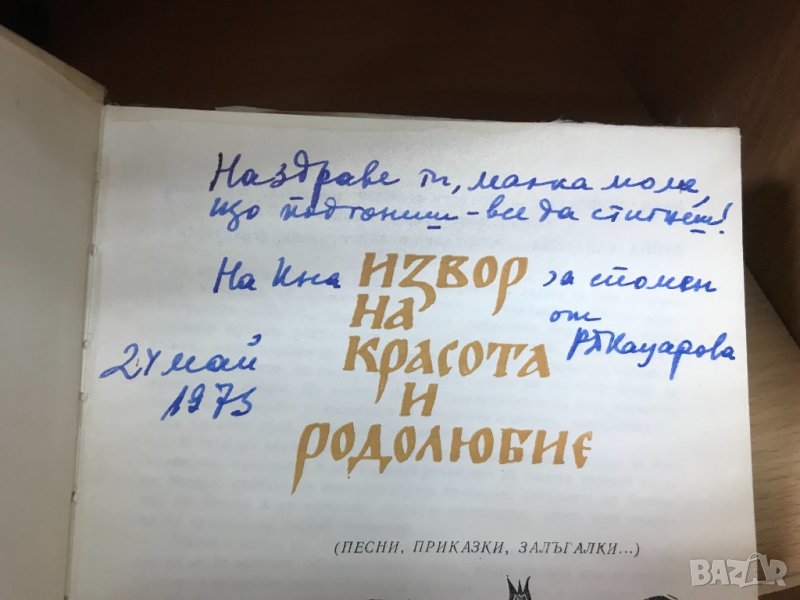 Наздраве ти, майка моле,
що подгониш - все да стигнеш!
На Ина ИЗВОР за спомен
НА от
КРАСОТА РПКацарова
24 май
И
1975
РОДОЛЮБИЕ
(ПЕСНИ, ПРИКАЗКИ, ЗАЛЪГАЛКИ...)
BAZAR